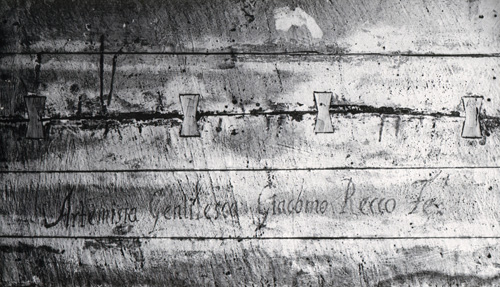 Artemisia Gentilesca Giacomo Recco Fe.t